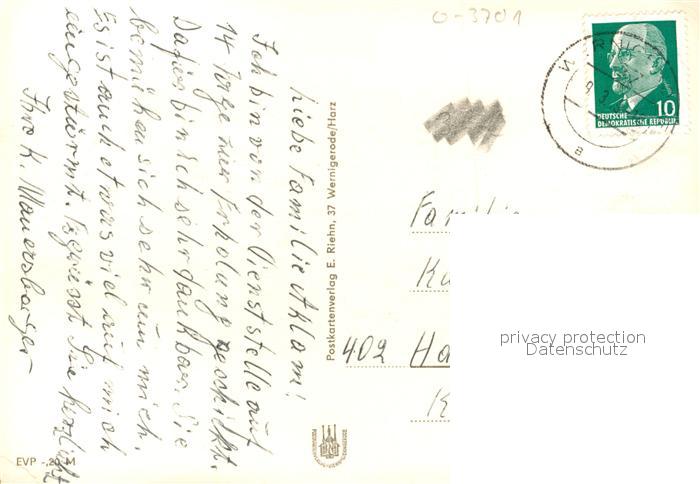 o-3701
Liebe Familie Adam!
Ich bin von der Dienststelle auf
14 Tage zur Erholung geschickt.
Dafür bin ich sehr dankbar. Sie
bemühen sich sehr um mich.
Es ist auch etwas viel auf mich
eingestürmt. Es grüsst Sie herzlichst
Ihre K. Mauersberger
EVP -,20 M
Postkartenverlag E. Riehn, 37 Wernigerode/Harz
10
DEUTSCHE
DEMOKRATISCHE REPUBLIK
Familie
Ku
402 Ha
K
privacy protection
Datenschutz